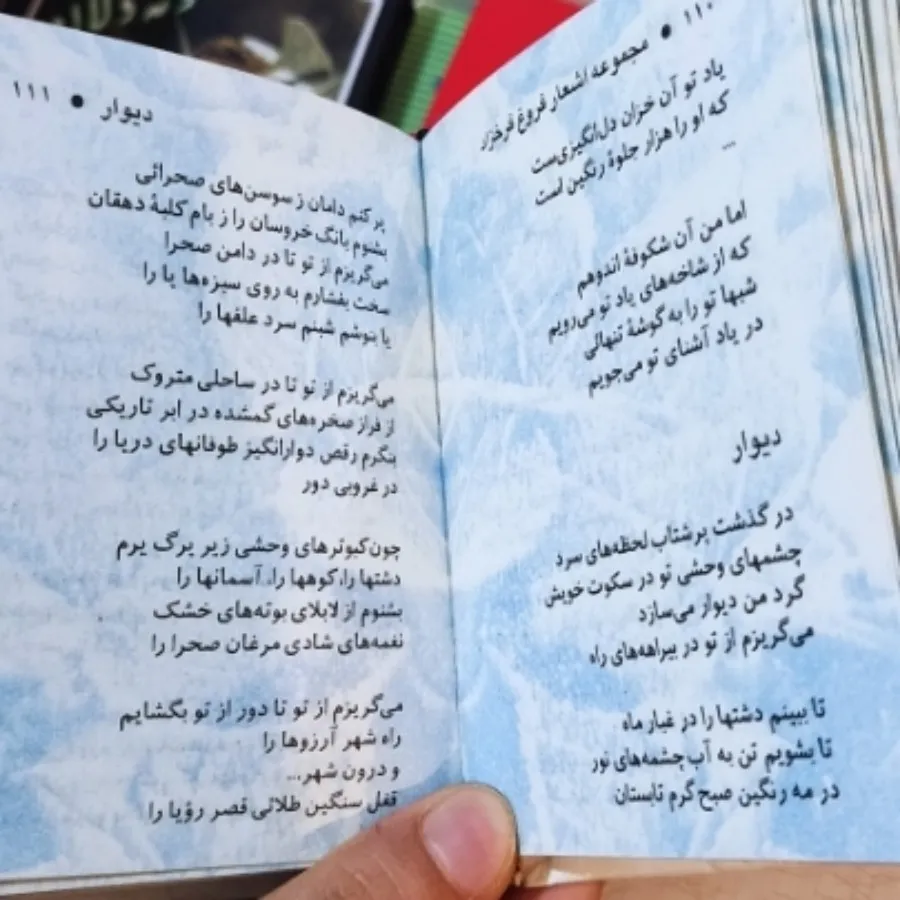 ۱۱۰ ● مجموعه اشعار فروغ فرخزاد
یاد تو آن خزان دل‌انگیزی‌ست
که او را هزار جلوهٔ رنگین است
...
اما من آن شکوفهٔ اندوهم
که از شاخه‌های یاد تو می‌رویم
شبها تو را به گوشهٔ تنهائی
در یاد آشنای تو می‌جویم
دیوار
در گذشت پرشتاب لحظه‌های سرد
چشمهای وحشی تو در سکوت خویش
گرد من دیوار می‌سازد
می‌گریزم از تو در بیراهه‌های راه
تا ببینم دشتها را در غبار ماه
تا بشویم تن به آب چشمه‌های نور
در مه رنگین صبح گرم تابستان
دیوار ● ۱۱۱
پر کنم دامان ز سوسن‌های صحرائی
بشنوم بانگ خروسان را ز بام کلبهٔ دهقان
می‌گریزم از تو تا در دامن صحرا
سخت بفشارم به روی سبزه‌ها پا را
یا بنوشم شبنم سرد علفها را
می‌گریزم از تو تا در ساحلی متروک
از فراز صخره‌های گمشده در ابر تاریکی
بنگرم رقص دوارانگیز طوفانهای دریا را
در غروبی دور
چون کبوترهای وحشی زیر پرگ یرم
دشتها را، کوهها را، آسمانها را
بشنوم از لابلای بوته‌های خشک
نغمه‌های شادی مرغان صحرا را
می‌گریزم از تو تا دور از تو بگشایم
راه شهر آرزوها را
و درون شهر...
قفل سنگین طلائی قصر رؤیا را